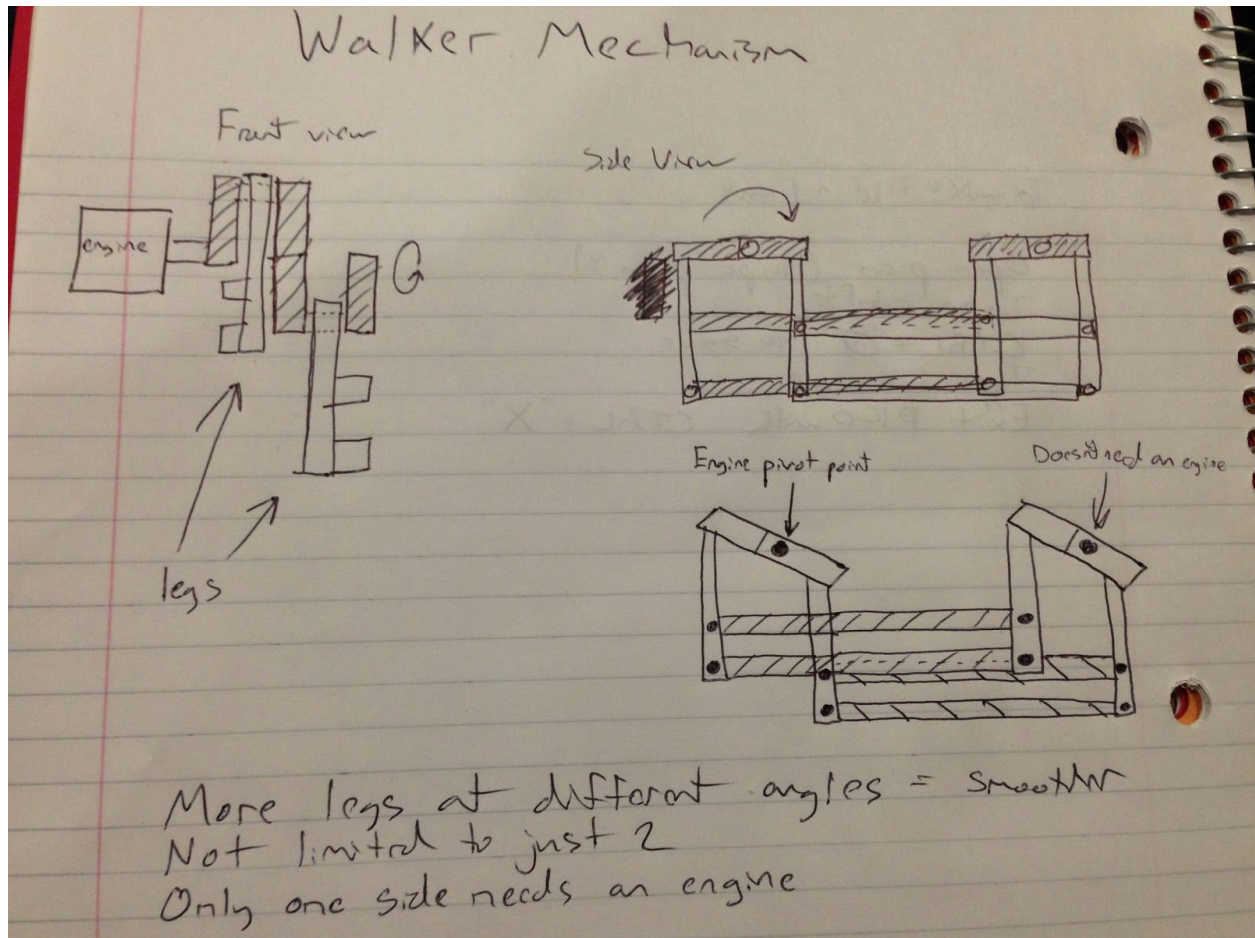 Walker Mechanism
Front view
Side View
engine
legs
Engine pivot point
Doesn't need an engine
More legs at different angles = smoother
Not limited to just 2
Only one side needs an engine